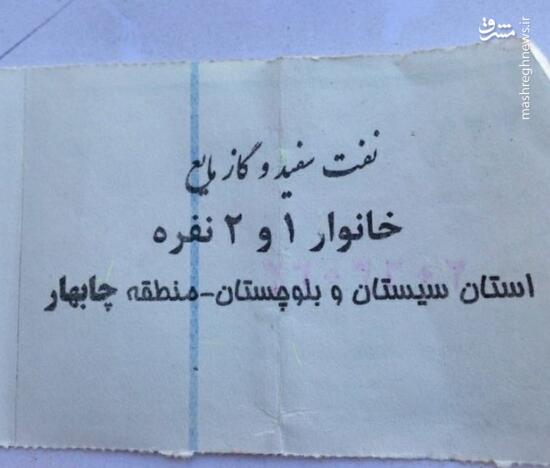 مشرق
mashreghnews.ir
نفت سفید و گاز مایع
خانوار ۱ و ۲ نفره
استان سیستان و بلوچستان-منطقه چابهار